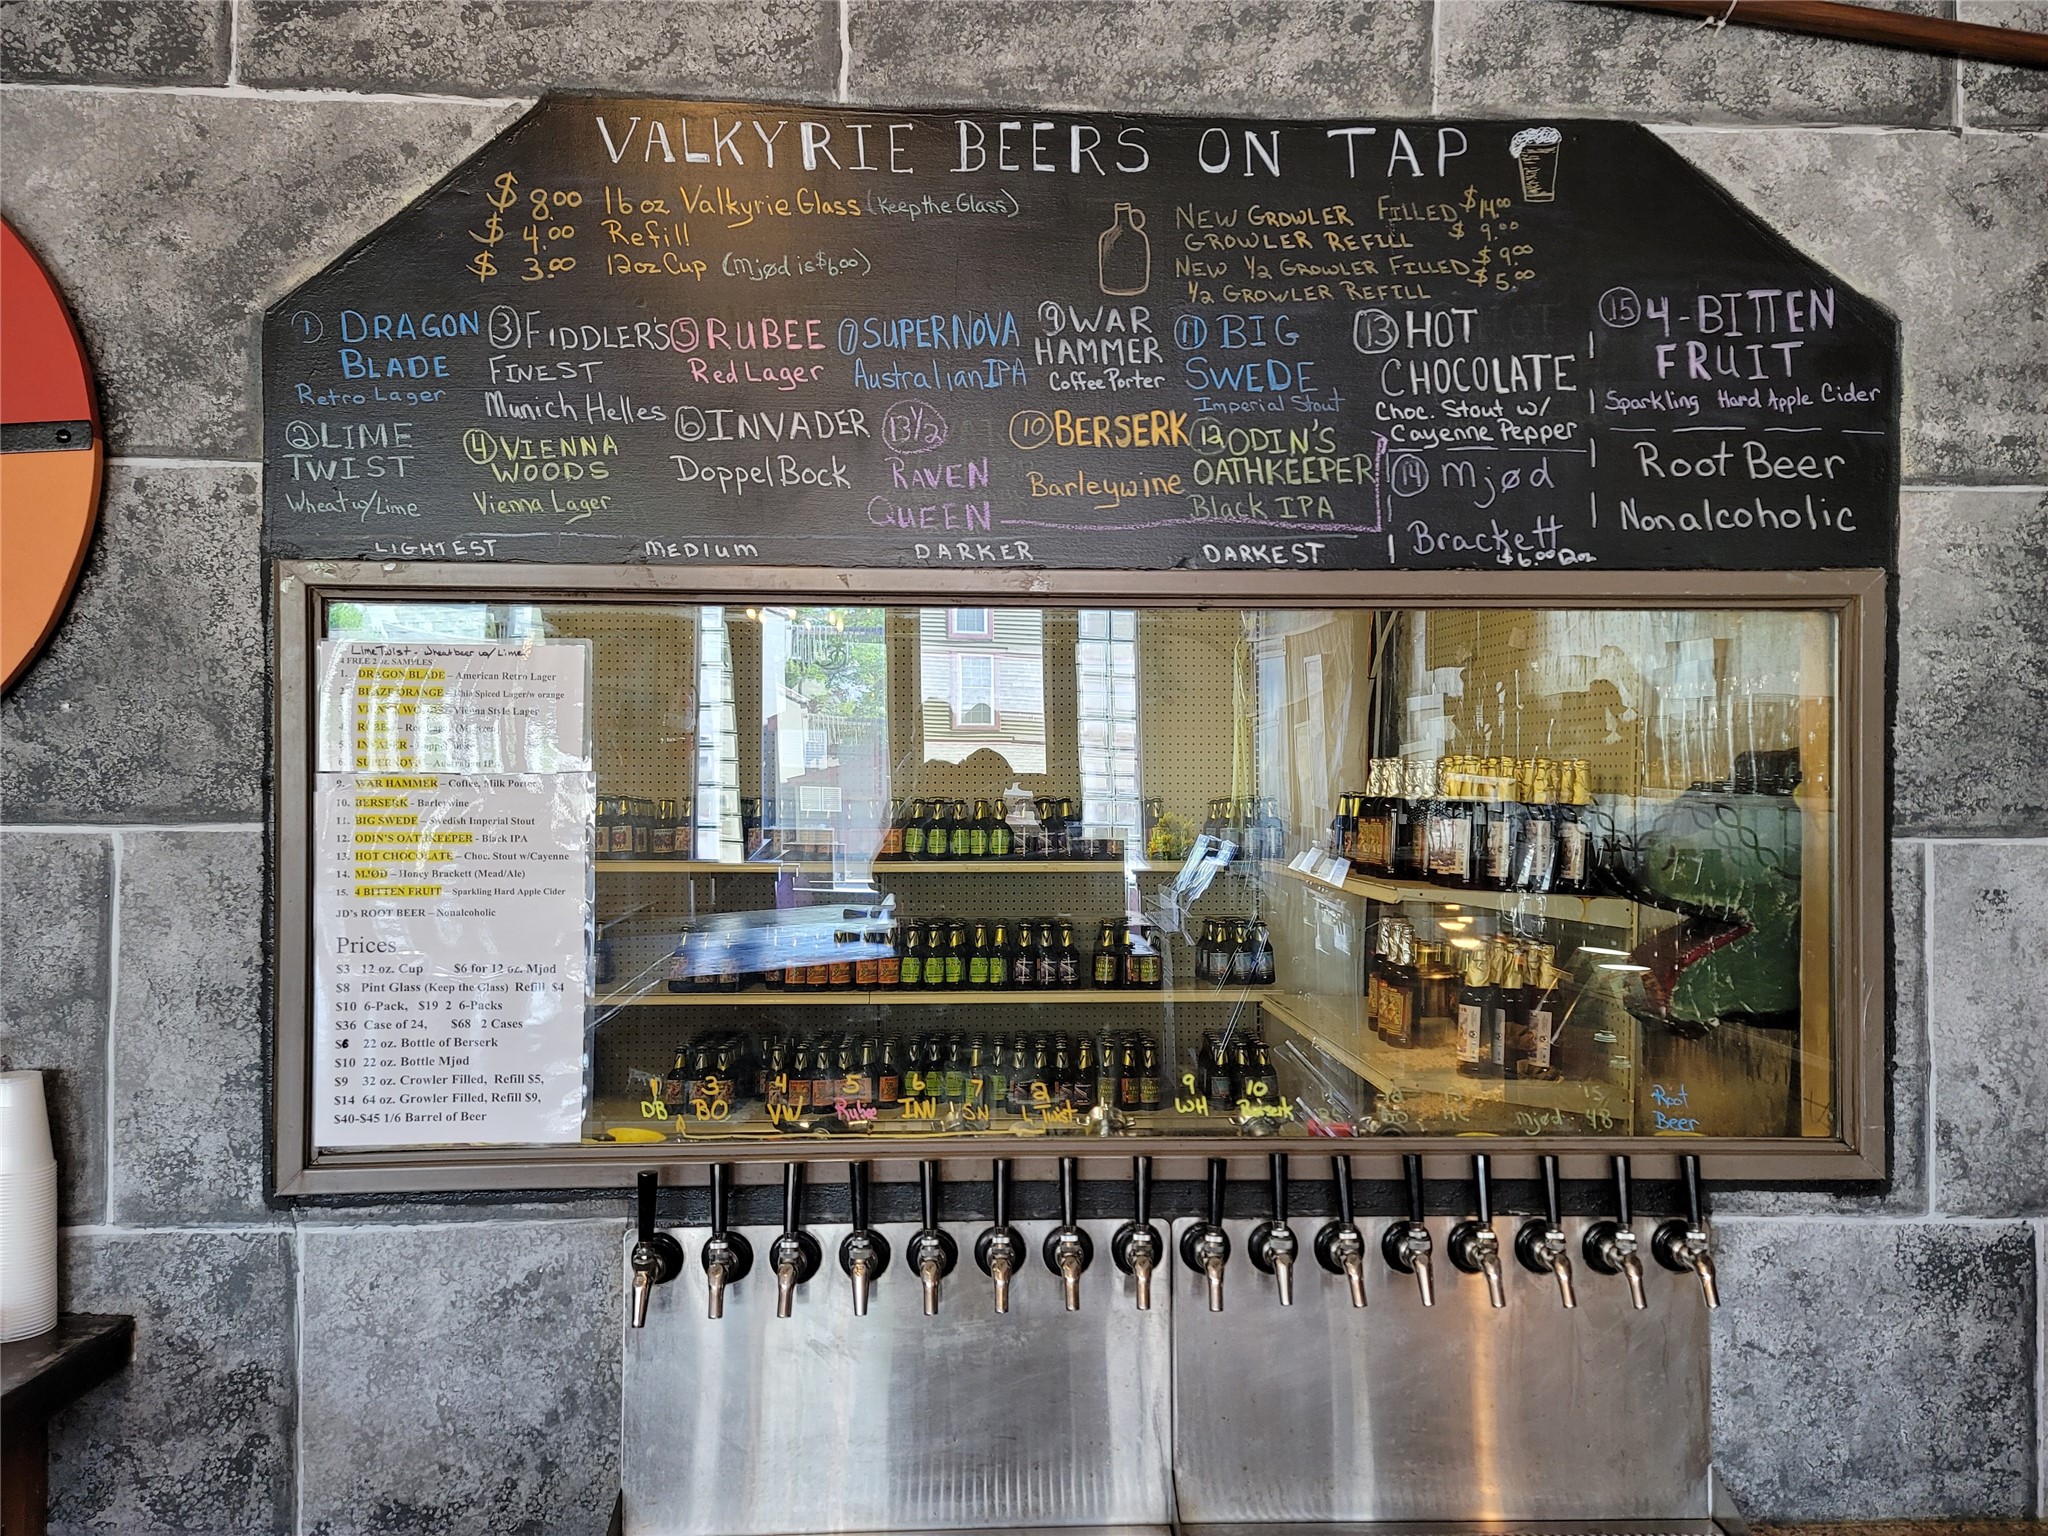 VALKYRIE BEERS ON TAP
$8.00 16 oz Valkyrie Glass (Keep the Glass)
$4.00 Refill
$3.00 12oz Cup (Mjød is $6.00)
NEW GROWLER FILLED $14.00
GROWLER REFILL $9.00
NEW 1/2 GROWLER FILLED $9.00
1/2 GROWLER REFILL $5.00
1 DRAGON
BLADE
Retro Lager
2 LIME
TWIST
Wheat w/Lime
3 FIDDLER'S
FINEST
Munich Helles
4 VIENNA
WOODS
Vienna Lager
5 RUBEE
Red Lager
6 INVADER
Doppel Bock
7 SUPERNOVA
Australian IPA
13 1/2
RAVEN
QUEEN
9 WAR
HAMMER
Coffee Porter
10 BERSERK
Barleywine
11 BIG
SWEDE
Imperial Stout
12 ODIN'S
OATHKEEPER
Black IPA
13 HOT
CHOCOLATE
Choc. Stout w/
Cayenne Pepper
14 Mjød
Brackett
$6.00 12oz
15 4-BITTEN
FRUIT
Sparkling Hard Apple Cider
Root Beer
Nonalcoholic
LIGHTEST MEDIUM DARKER DARKEST
Lime Twist - Wheat beer w/ Lime
4 FREE 2 oz. SAMPLES
1. DRAGON BLADE – American Retro Lager
2. BLAZE ORANGE – Spiced Lager/w orange
3. VIENNA WOODS – Vienna Style Lager
4. RUBEE – Red Lager
5. INVADER -
6. SUPERNOVA – Australian IPA
9. WAR HAMMER – Coffee, Milk Porter
10. BERSERK - Barleywine
11. BIG SWEDE – Swedish Imperial Stout
12. ODIN'S OATHKEEPER - Black IPA
13. HOT CHOCOLATE – Choc. Stout w/Cayenne
14. MJØD – Honey Brackett (Mead/Ale)
15. 4 BITTEN FRUIT – Sparkling Hard Apple Cider
JD's ROOT BEER – Nonalcoholic
Prices
$3 12 oz. Cup $6 for 12 oz. Mjød
$8 Pint Glass (Keep the Glass) Refill $4
$10 6-Pack, $19 2 6-Packs
$36 Case of 24, $68 2 Cases
$6 22 oz. Bottle of Berserk
$10 22 oz. Bottle Mjød
$9 32 oz. Crowler Filled, Refill $5,
$14 64 oz. Growler Filled, Refill $9,
$40-$45 1/6 Barrel of Beer
1 3 4 5 6 7 2 9 10 15
DB BO VW Rubee INV SN L Twist WH Berserk Mjød 4B
Root
Beer